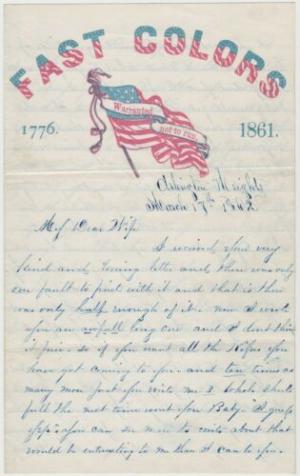 FAST COLORS
Warranted
not to run.
1776. 1861.
Arlington Heights
March 17th 1862
My Dear Wife
I received your very
kind and loving letter and there was only
one fault to find with it and that is there
was only half enough of it. now I wrote
you an awful long one and I dont think
it fair. so if you want all the Kisses you
have got coming to you. and ten times as
many more Just you write me 2 whole sheets
full the next time wont you Baby. I guess
you can see more to write about that
would be interesting to me than I can to you.